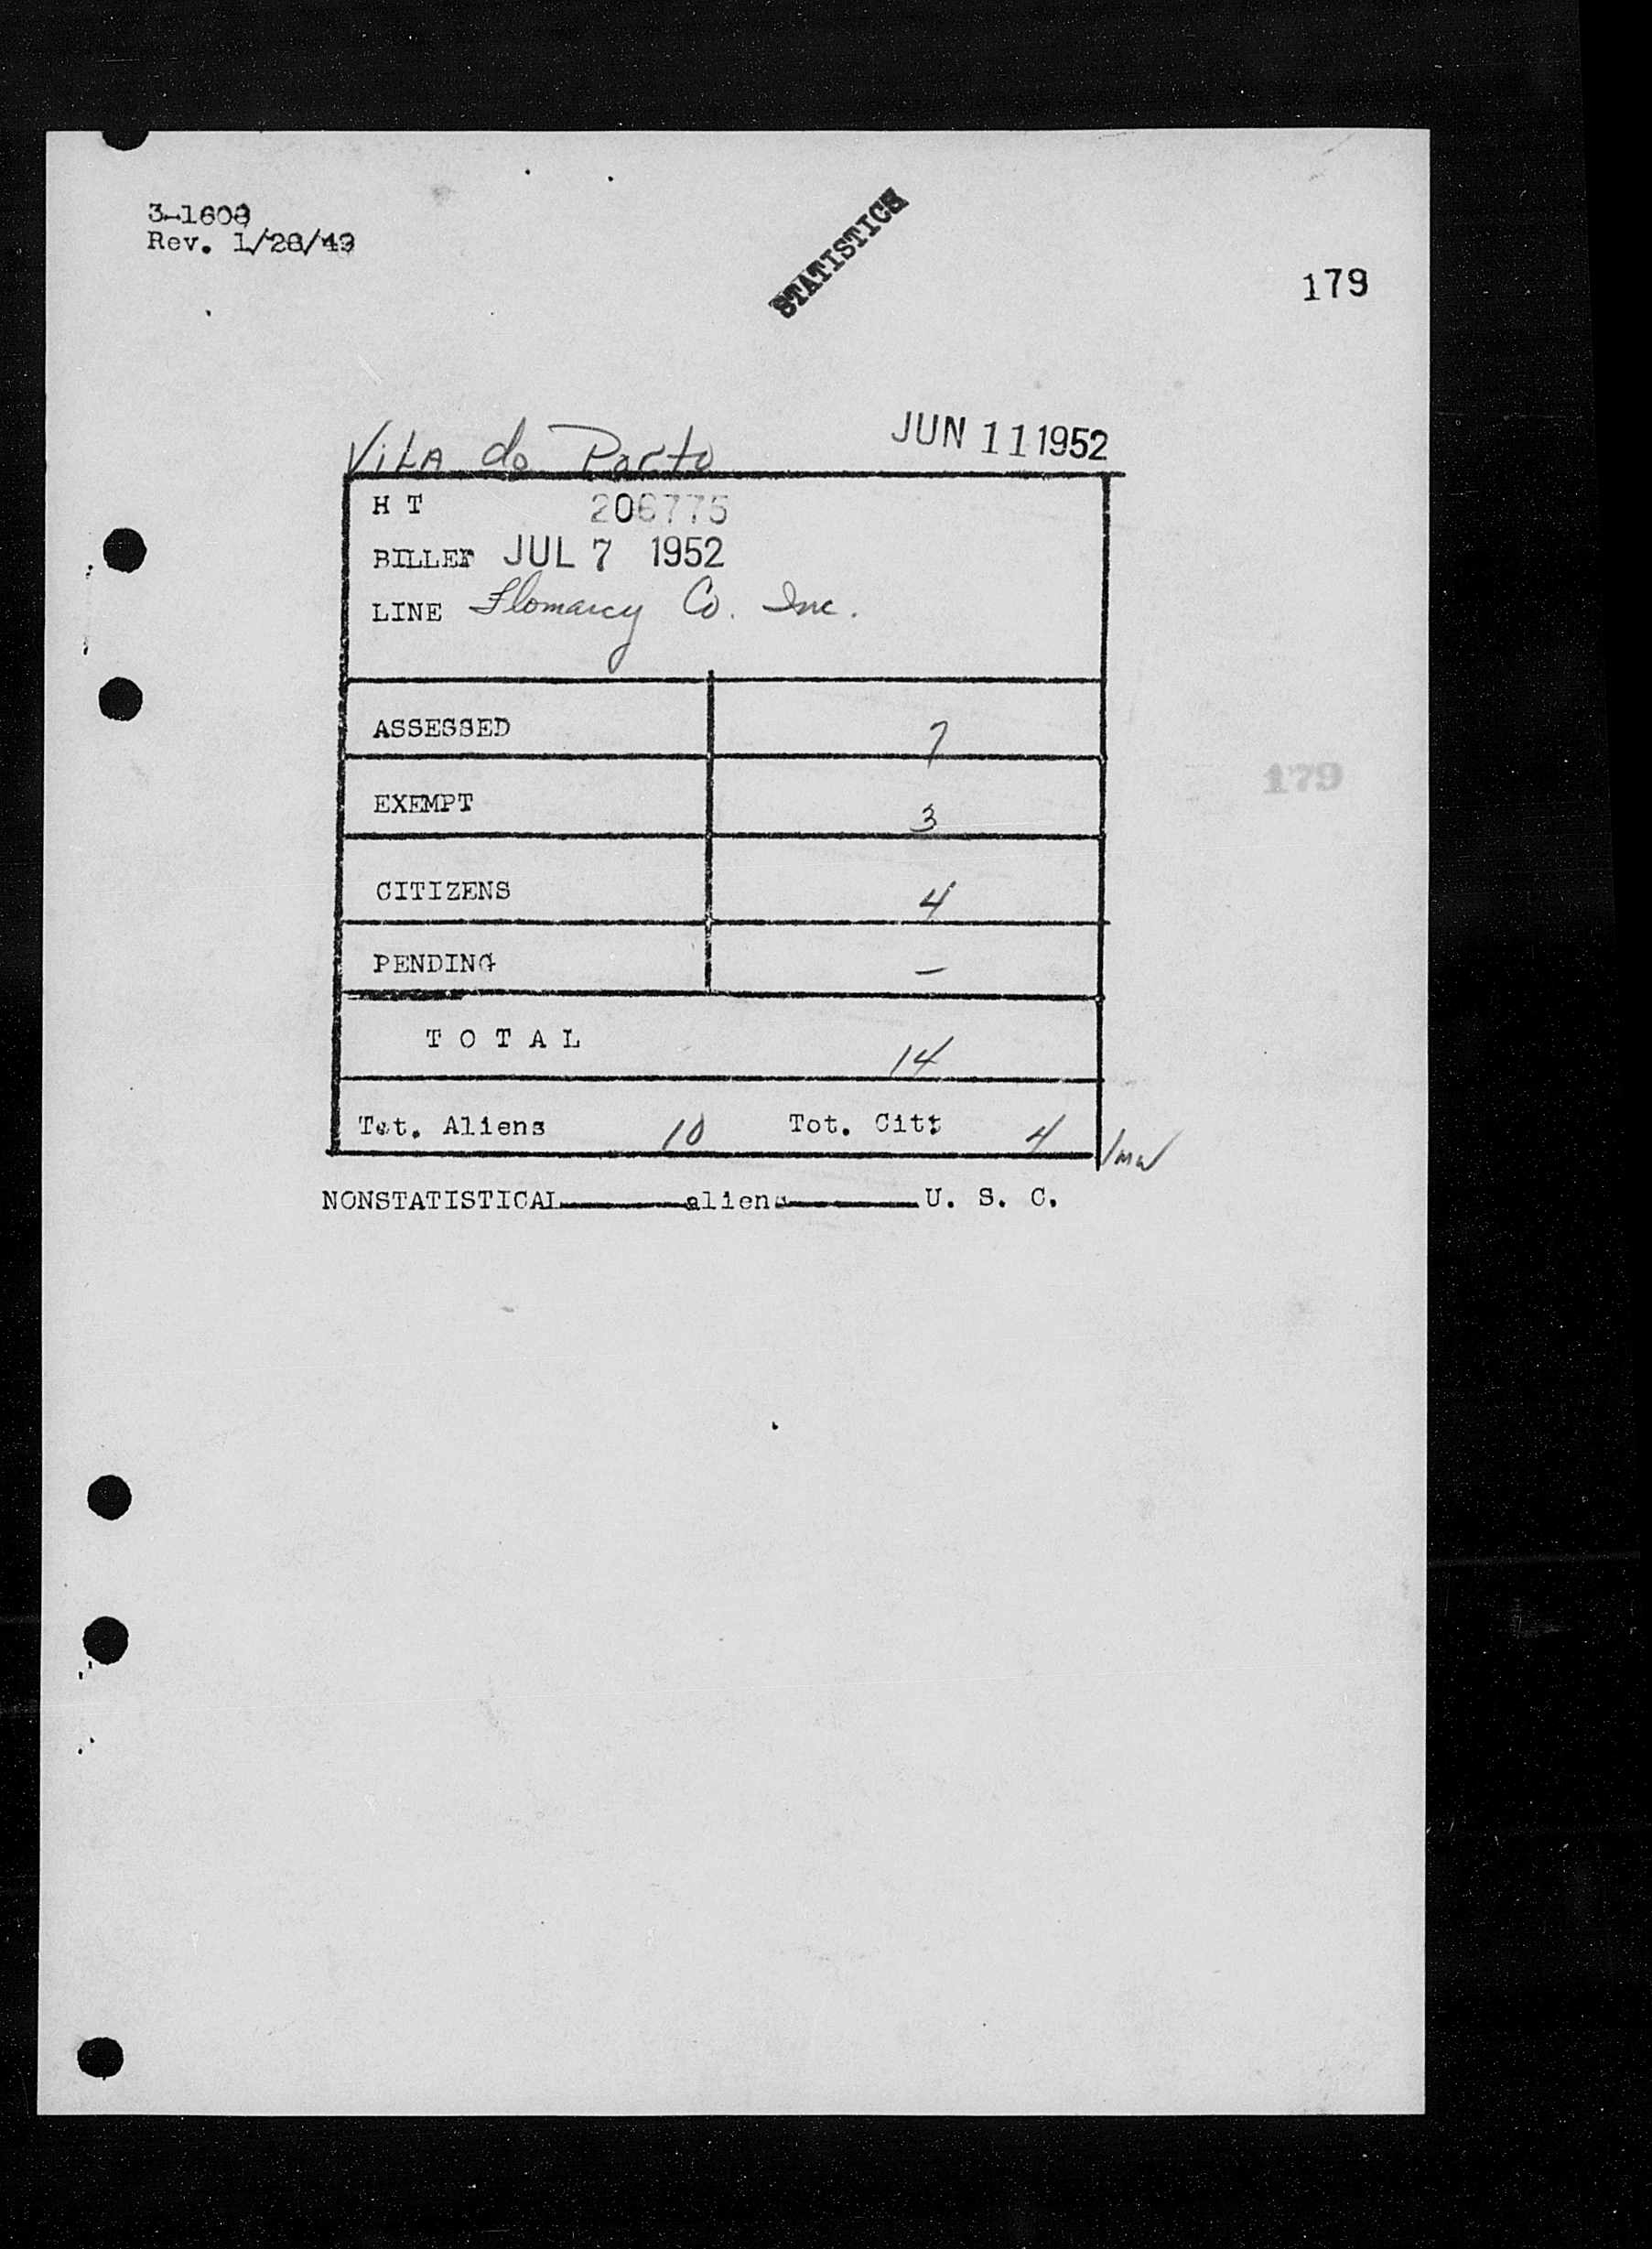 3-1608
Rev. 1/28/49
STATISTICS
179
Vila do Porto JUN 11 1952
H T 206775
BILLET JUL 7 1952
LINE Flomarcy Co. Inc.
ASSESSED 7
EXEMPT 3
179
CITIZENS 4
PENDING –
T O T A L 14
Tot. Aliens 10 Tot. Citz 4
NONSTATISTICAL aliens U. S. C.